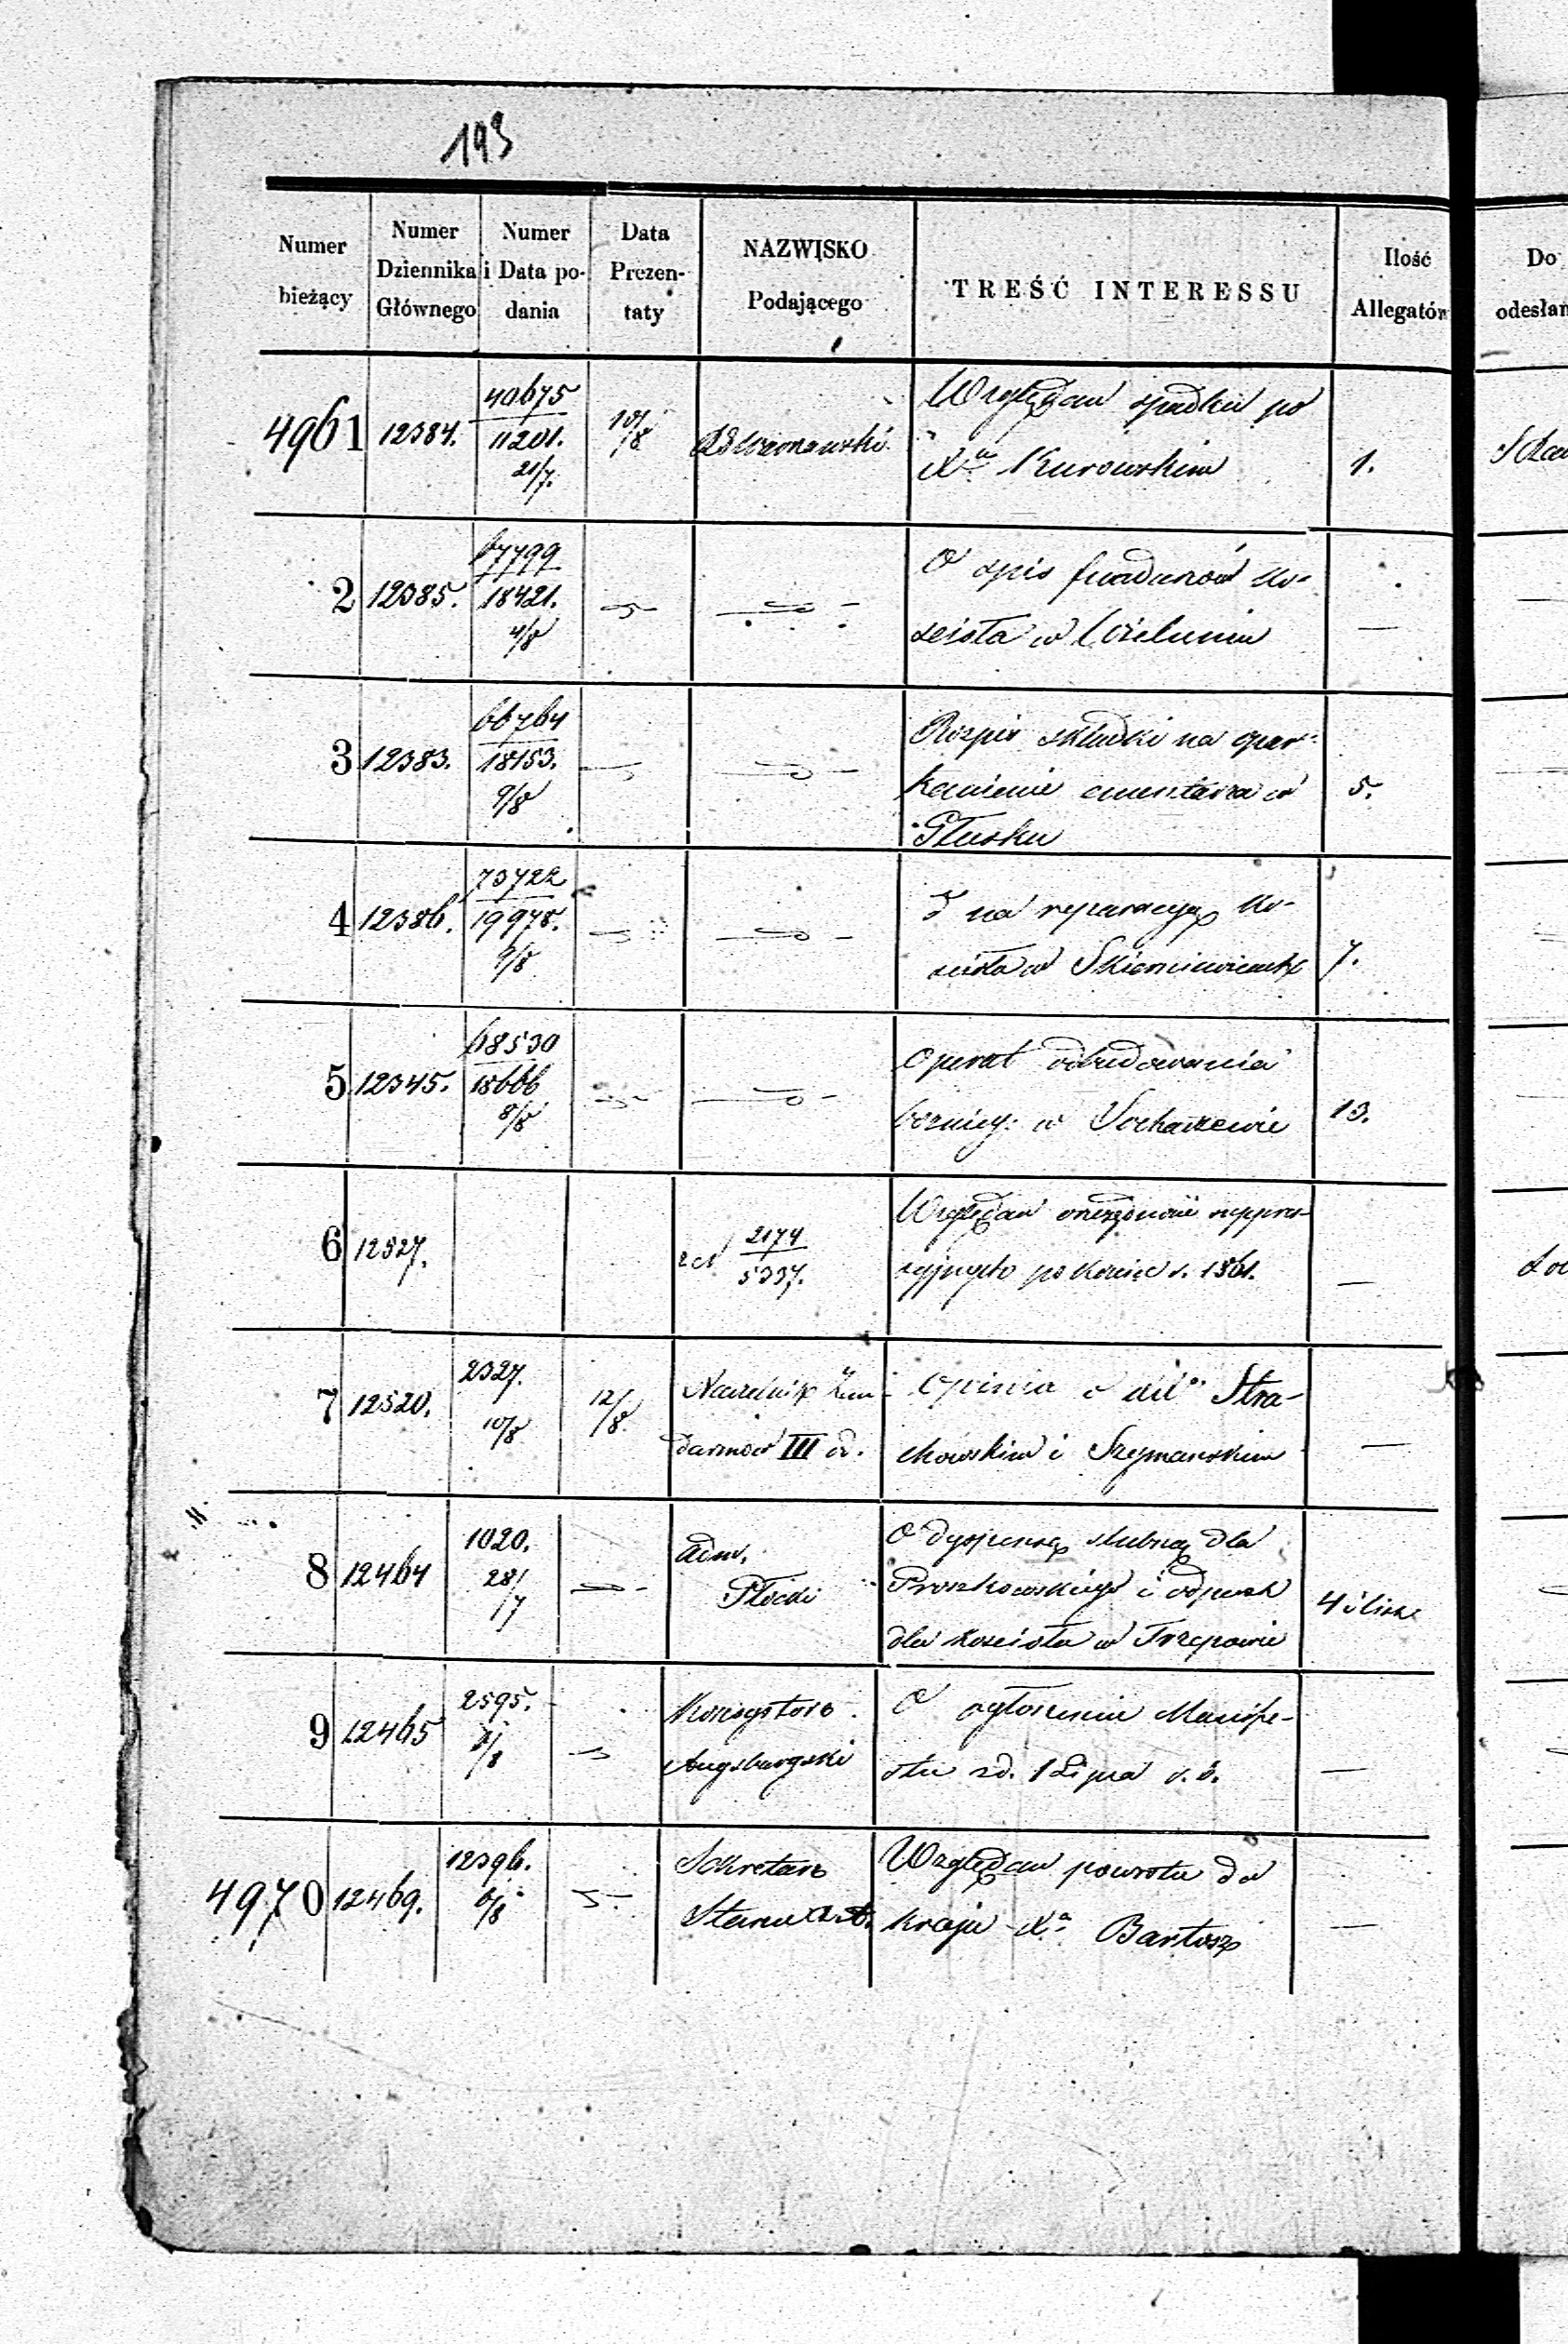 193
Numer bieżący
Numer Dziennika Głównego
Numer i Data podania
Data Prezentaty
NAZWISKO Podającego
TREŚĆ INTERESSU
Ilość Allegatów
Do
odesłan
4961 12384. 40675
11201.
21/7.
10/8
Względem spadku po
Xu Kurowskim
1.
2 12385. 67799
18421.
4/8
O spis funduszów Ko-
ścioła w Wieluniu
—
3 12383. 66764
18153.
9/8
Rozpis składki na opar-
kanienie cmentarza w
Głusku
5.
4 12386. 73722
19978.
9/8
d na reperacyą Ko-
ścioła w Skierniewicach
7.
5 12345. 68530
18666
8/8
Operat odbudowania
bożnicy w Sochaczewie
13.
6 12527.
2174
5337.
Względem
po Koniec r. 1861.
—
7 12520. 2327.
10/8
12/8
Naczelnik Żan-
darmów III o.
Opinia o Stra-
chowskim i Szymanskim
—
8 12464 1020.
28/7
Adm.
Płocki
O dyspensę ślubną dla
Proszkowskiego i odpust
dla Kościoła w Trzepowie
4 i
9 12465 2595.
/8
Konsystorz
Augsburgski
O ogłoszeniu Manife-
stu z d. 1 Lipca r. b.
—
4970 12469. 12396.
6/8
Sekretarz
Stanu
Względem powrotu do
kraju Xa Bartosz
—